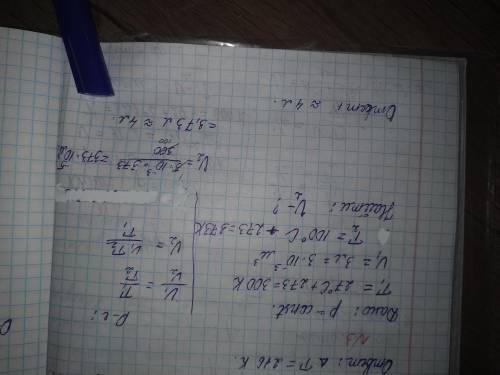 Ответ: Δ T = 246 К.
N3
Дано: p – const.
T₁ = 27°C + 273 = 300 К
V₁ = 3л = 3·10⁻³ м³
T₂ = 100°C + 273 = 373К
Найти:
V₂ – ?
Р-е:
V₁/T₁ = V₂/T₂
V₂ = V₁T₂/T₁
V₂ = 3·10⁻³·373/300 = 373·10⁻⁵
100
= 3,73 л ≈ 4 л.
Ответ: ≈ 4 л.